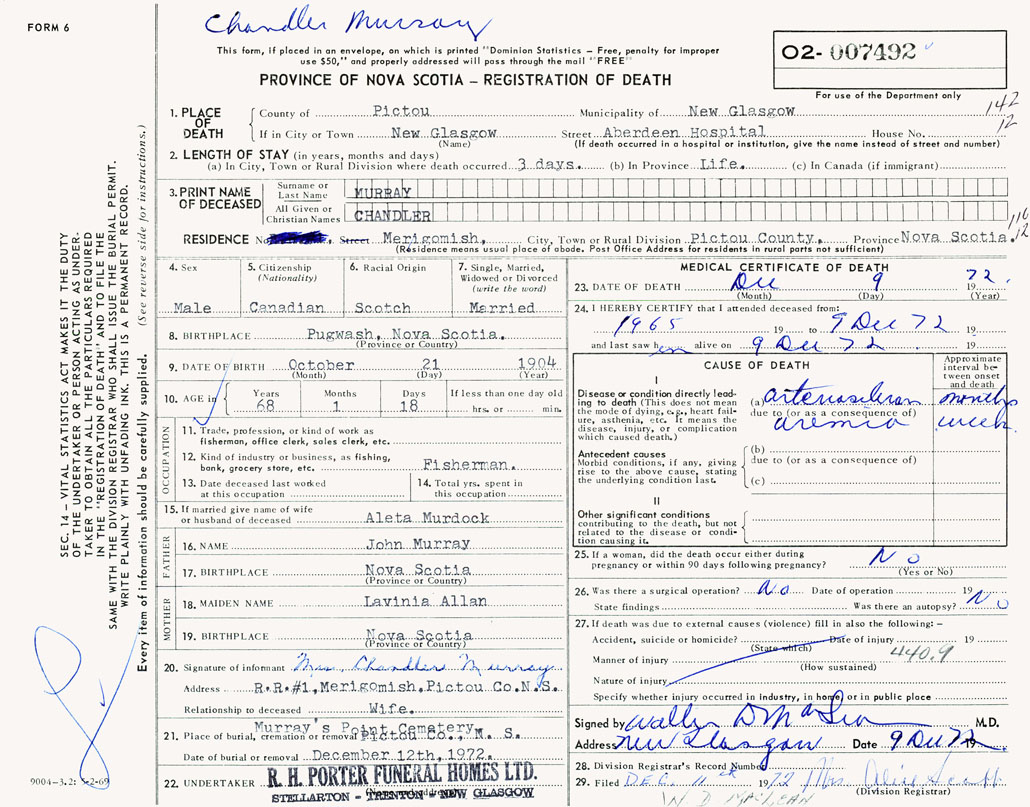 FORM 6
Chandler Murray
This form, if placed in an envelope, on which is printed "Dominion Statistics – Free, penalty for improper
use $50," and properly addressed will pass through the mail "FREE"
PROVINCE OF NOVA SCOTIA – REGISTRATION OF DEATH
02- 007492
For use of the Department only
142
12
1. PLACE OF DEATH
County of Pictou Municipality of New Glasgow
If in City or Town New Glasgow Street Aberdeen Hospital House No.
(Name) (If death occurred in a hospital or institution, give the name instead of street and number)
2. LENGTH OF STAY (in years, months and days)
(a) In City, Town or Rural Division where death occurred 3 days. (b) In Province Life. (c) In Canada (if immigrant)
3. PRINT NAME OF DECEASED
Surname or Last Name MURRAY
All Given or Christian Names CHANDLER
RESIDENCE No. Street Merigomish, City, Town or Rural Division Pictou County, Province Nova Scotia.
(Residence means usual place of abode. Post Office Address for residents in rural parts not sufficient)
4. Sex
Male
5. Citizenship
(Nationality)
Canadian
6. Racial Origin
Scotch
7. Single, Married, Widowed or Divorced
(write the word)
Married
8. BIRTHPLACE Pugwash, Nova Scotia.
(Province or Country)
9. DATE OF BIRTH October 21 1904
(Month) (Day) (Year)
10. AGE in Years Months Days If less than one day old
68 1 18 hrs. or min.
OCCUPATION
11. Trade, profession, or kind of work as
fisherman, office clerk, sales clerk, etc.
12. Kind of industry or business, as fishing,
bank, grocery store, etc. Fisherman.
13. Date deceased last worked
at this occupation
14. Total yrs. spent in
this occupation
15. If married give name of wife
or husband of deceased Aleta Murdock
FATHER
16. NAME John Murray
17. BIRTHPLACE Nova Scotia
(Province or Country)
MOTHER
18. MAIDEN NAME Lavinia Allan
19. BIRTHPLACE Nova Scotia
(Province or Country)
20. Signature of informant Mrs. Chandler Murray
Address R.R.#1, Merigomish, Pictou Co. N.S.
Relationship to deceased Wife.
Murray's Point Cemetery
21. Place of burial, cremation or removal Pictou Co., N. S.
Date of burial or removal December 12th, 1972.
22. UNDERTAKER R. H. PORTER FUNERAL HOMES LTD.
STELLARTON - TRENTON - NEW GLASGOW
MEDICAL CERTIFICATE OF DEATH
23. DATE OF DEATH Dec 9 1972.
(Month) (Day) (Year)
24. I HEREBY CERTIFY that I attended deceased from:
1965 19 to 9 Dec 72 19
and last saw him alive on 9 Dec 72 19
CAUSE OF DEATH
Approximate interval between onset and death
I
Disease or condition directly leading
to death (This does not mean
the mode of dying, e.g., heart failure,
asthenia, etc. It means the
disease, injury, or complication
which caused death.)
(a) months
due to (or as a consequence of)
uremia week
Antecedent causes
Morbid conditions, if any, giving
rise to the above cause, stating
the underlying condition last.
(b)
due to (or as a consequence of)
(c)
II
Other significant conditions
contributing to the death, but not
related to the disease or condition
causing it.
25. If a woman, did the death occur either during
pregnancy or within 90 days following pregnancy? No
(Yes or No)
26. Was there a surgical operation? No Date of operation 19
State findings Was there an autopsy? No
27. If death was due to external causes (violence) fill in also the following: –
Accident, suicide or homicide? Date of injury 19
(State which)
440.9
Manner of injury
(How sustained)
Nature of injury
Specify whether injury occurred in industry, in home, or in public place
Signed by M.D.
Address New Glasgow Date 9 Dec 72 19
28. Division Registrar's Record Number
29. Filed DEC. 11th 1972 Mrs.
(Division Registrar)
W. D. MacLEAN
SEC. 14 – VITAL STATISTICS ACT MAKES IT THE DUTY
OF THE UNDERTAKER OR PERSON ACTING AS UNDERTAKER
TO OBTAIN ALL THE PARTICULARS REQUIRED
IN THE "REGISTRATION OF DEATH" AND TO FILE THE
SAME WITH THE DIVISION REGISTRAR WHO SHALL ISSUE THE BURIAL PERMIT.
WRITE PLAINLY WITH UNFADING INK. THIS IS A PERMANENT RECORD.
Every item of information should be carefully supplied. (See reverse side for instructions.)
9004-3.2: